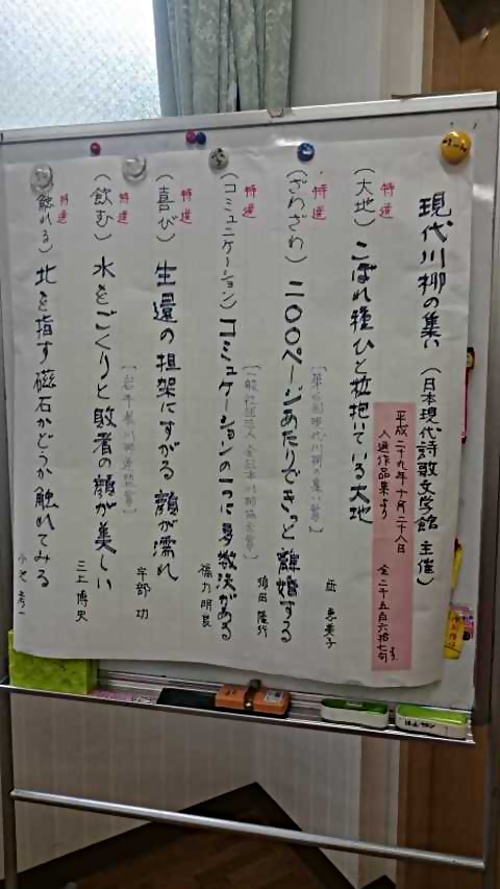 現代川柳の集い（日本現代詩歌文学館 主催）
平成二十九年十月二十八日
入選作品集より
全二千五百六拾七句
特選
（大地）こぼれ種ひと粒抱いている大地
恵美子
特選
（ざわざわ）二〇〇ページあたりできっと離婚する
隆行
特選
（コミュニケーション）コミュケーションの一つに多数決がある
明良
特選
（喜び）生還の担架にすがる顔が濡れ
宇部 功
特選
（飲む）水をごくりと敗者の顔が美しい
三上 博史
特選
（触れる）北を指す磁石かどうか触れてみる